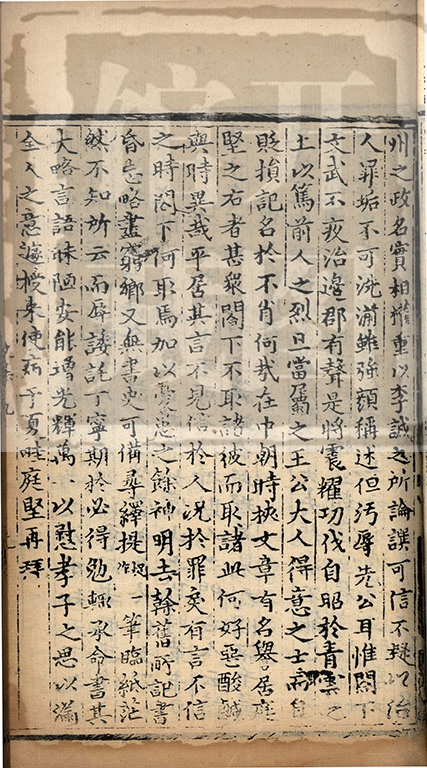 州之政名實相權重以李誠之所論譔可信不疑以治
人罪垢不可洗湔雖強顔稱述但汚辱先公耳惟閤下
文武不疚治邊郡有聲是將震耀功伐自昭於青雲之
上以篤前人之烈旦當屬之王公大人得意之士高自
貶損記名於不肖何哉在中朝時挾文章有名譽居庭
堅之右者甚衆閤下不取諸彼而取諸此何好惡酸鹹
與時異哉平居其言不見信於人况於罪戾有言不信
之時閤下何取焉加以憂患之餘神明去幹舊所記書
昏忘略盡窮鄉又無書史可備尋繹提筆臨紙茫
然不知所云而辱諉託丁寧期於必得勉輒承命書其
大略言語味陋安能增光輝萬一以慰孝子之思以滿
全人之意遽授來使病予夏畦庭堅再拜